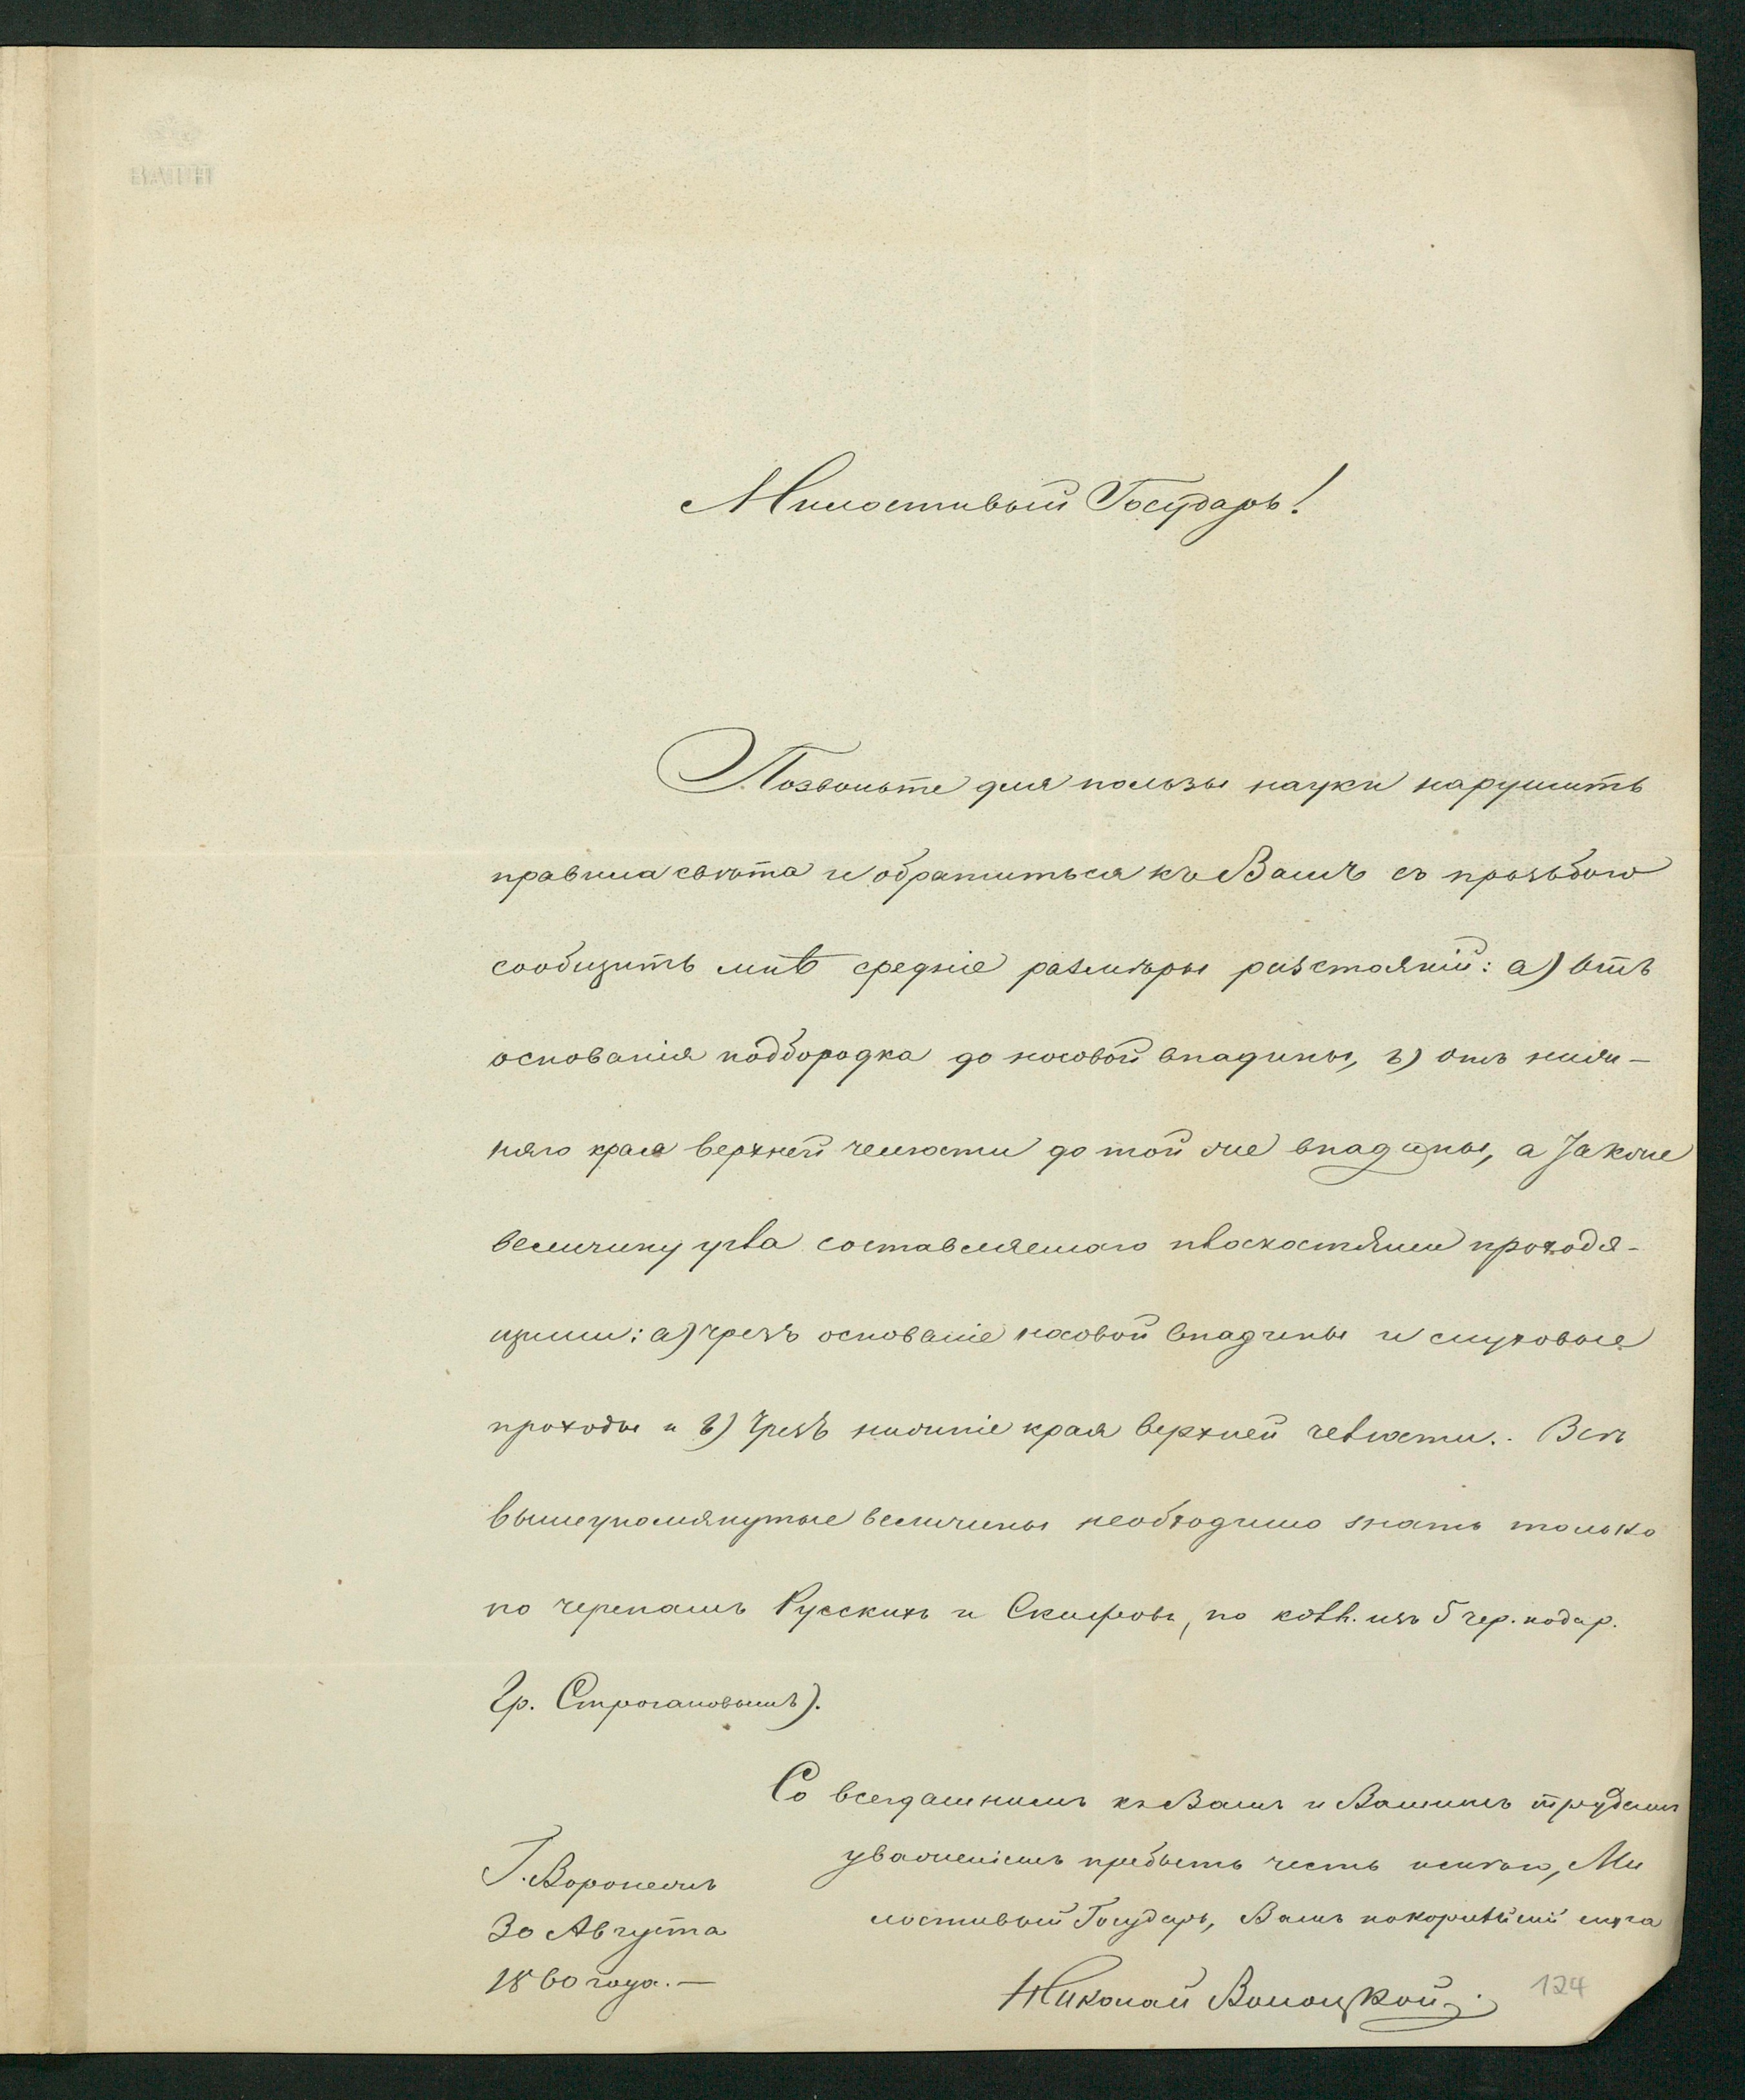 Милостивый Государь!
Позвольте для пользы науки нарушить
правила свѣта и обратиться къ Вамъ съ прозьбою
сообщить мнѣ средніе размѣры разстояній: а) отъ
основанія подбородка до носовой впадины, в) отъ ниж-
няго края верхней челюсти до той же впадины, а также
величину угла составляемаго плоскостями проходя-
щими: а) чрезъ основаніе носовой впадины и слуховые
проходы и в) чрезъ нижніе края верхней челюсти. Всѣ
вышеупомянутые величины необходимо знать только
по черепамъ Русскихъ и Скифовъ, по изъ 5 чер. подар.
Гр. Строгановымъ).
Со всегдашнимъ къ Вамъ и Вашимъ трудамъ
уваженіемъ пребыть честь имѣю, Ми
лостивый Государь, Вашъ покорнѣйшій слуга
Николай Волоцкой.
Г. Воронежъ
30 Августа
1860 года. —
124